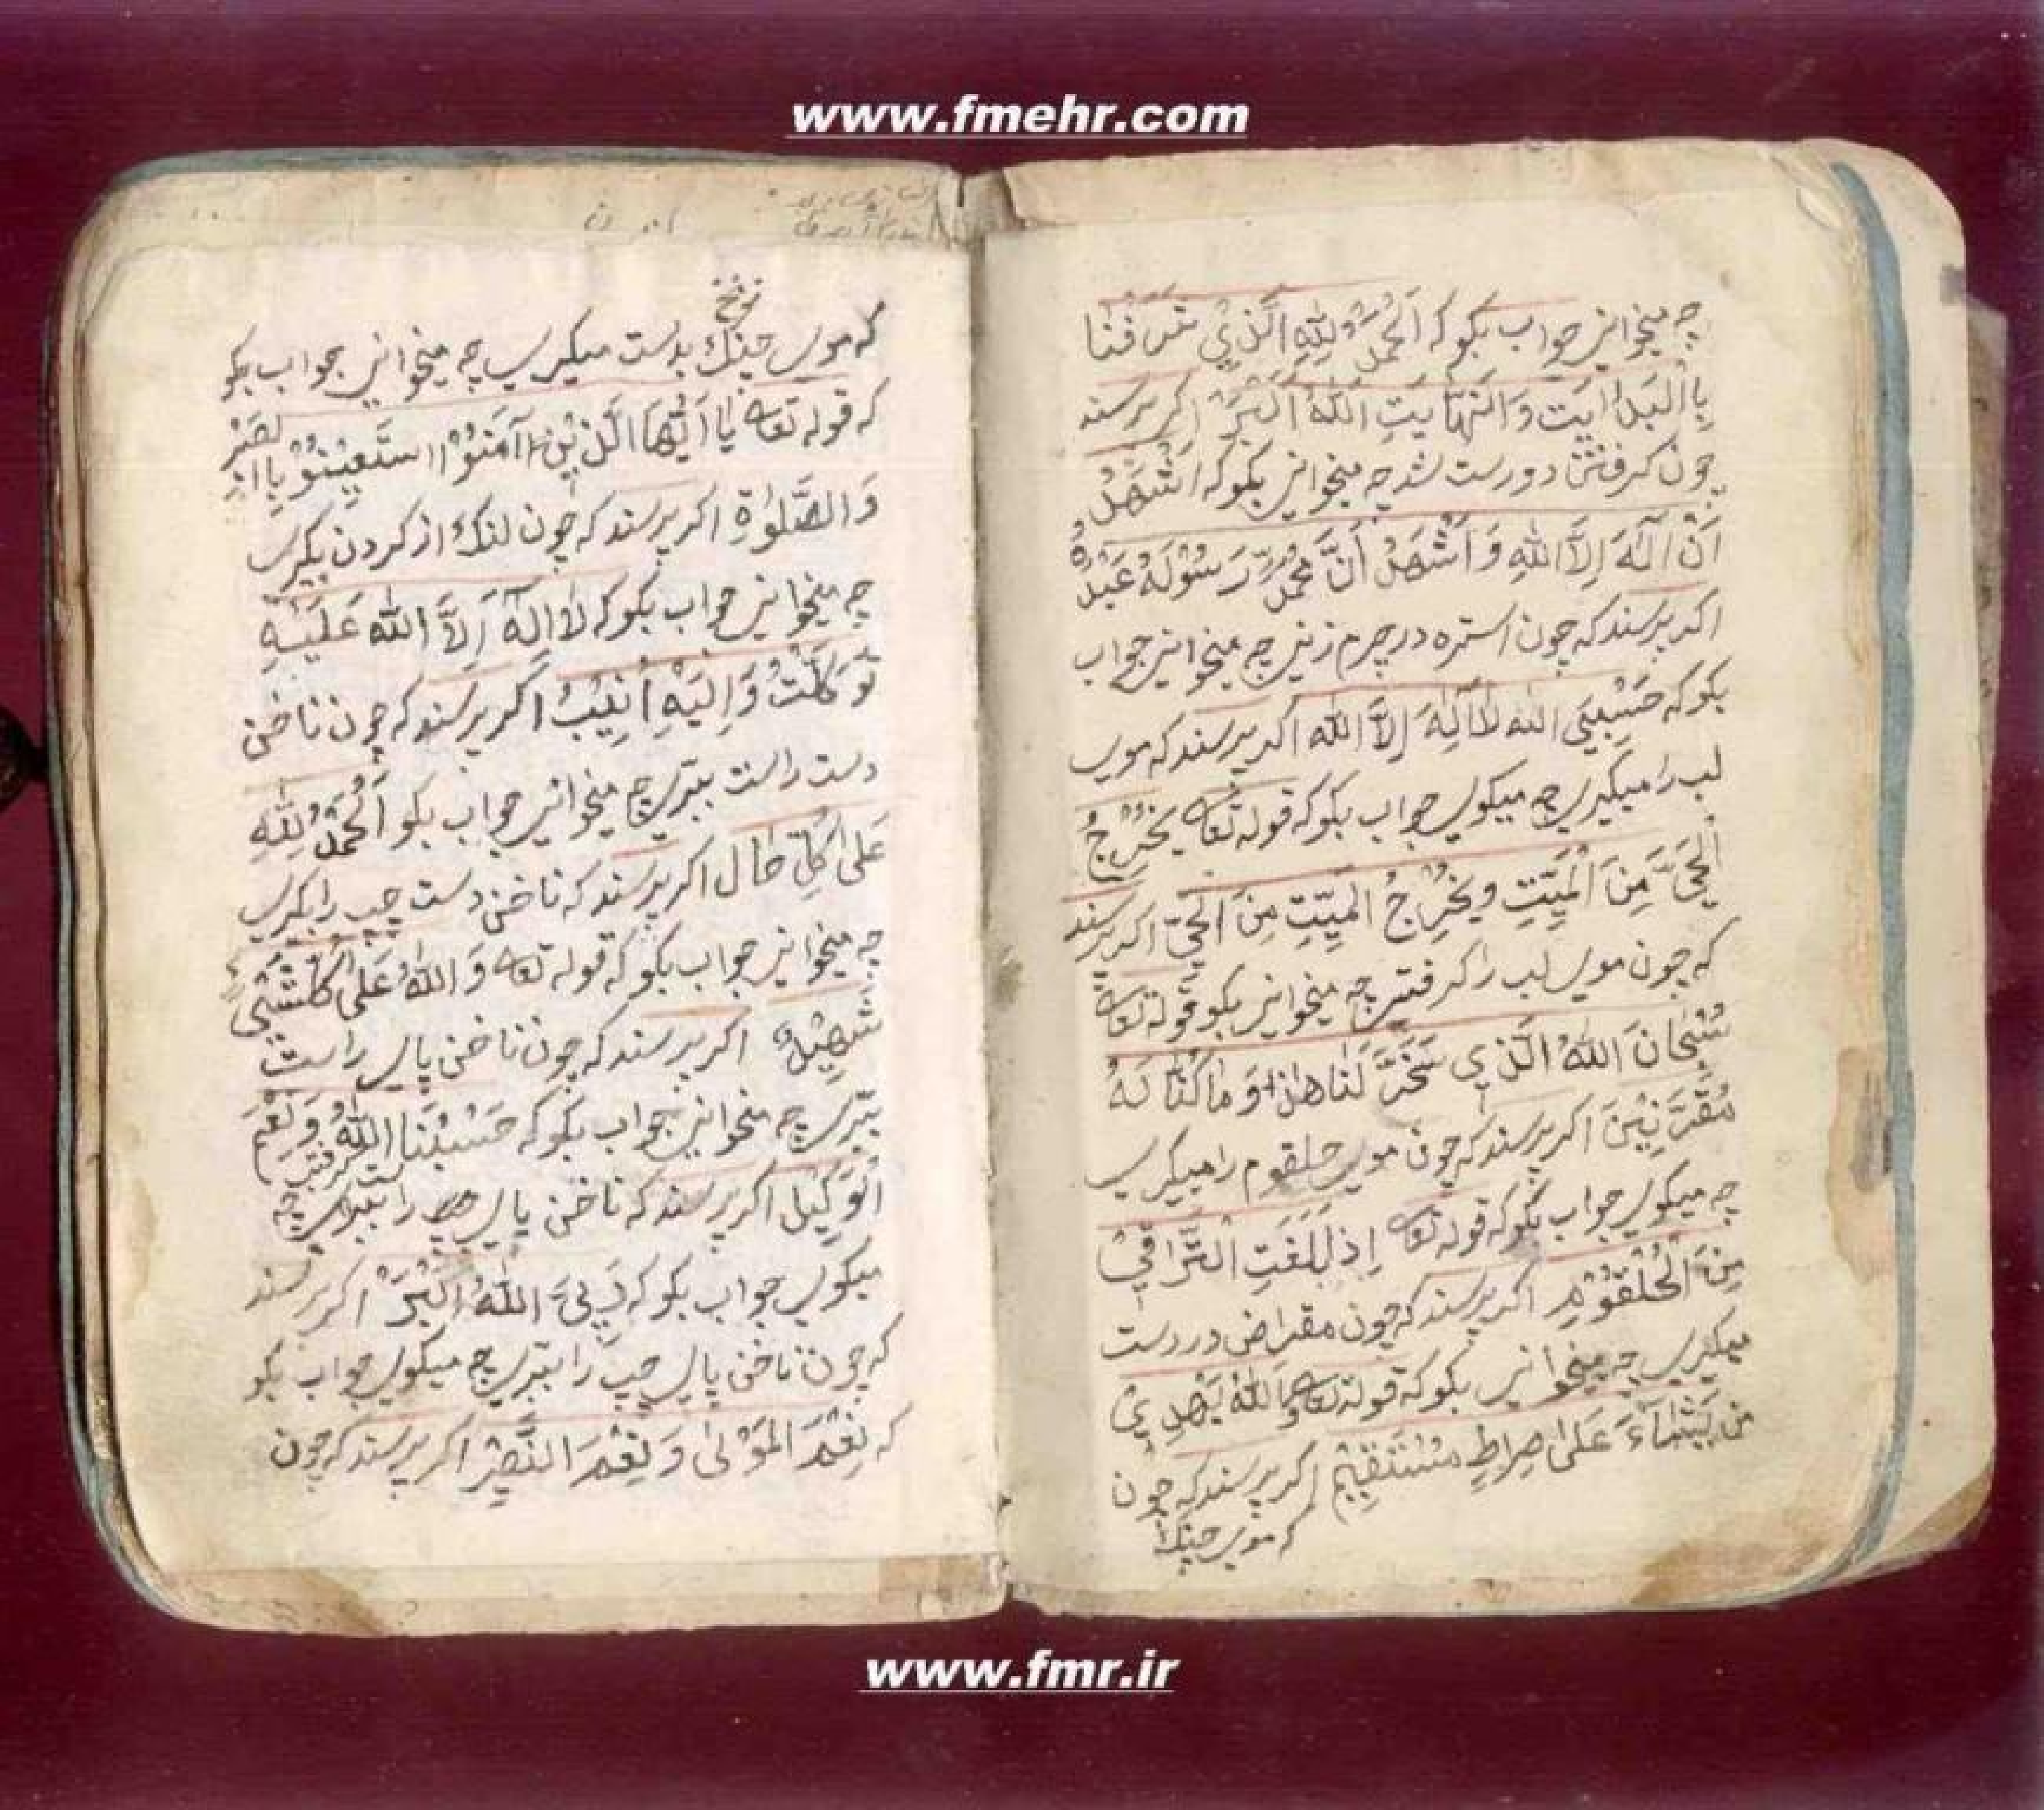 www.fmehr.com
چه میخوانی جواب بکو که اَلْحَمْدُ لِلّٰهِ الَّذِی شَرَفَنا
اَللّٰهُ اَکْبَرْ اکر پرسند
چون کرفتن دورست شد چه میخوانی بکو که اَشْهَدُ
اَنْ لآاِلٰهَ اِلاَّ اللّٰهِ وَ اَشْهَدُ اَنَّ مُحَمَّدٌ رَسُوْلَهُ عَبْدُهُ
اکر پرسند که چون استره در چرم زنی چه میخوانی جواب
بکو که حَسْبِیَ اللّٰه لاٰ اِلٰهَ اِلاَّ اللّٰه اکر پرسند که موی
لب را میکیری چه میکوی جواب بکو که قوله تعا یُخْرِجُ
الْحَیَّ مِنَ الْمَیِّتِ ویُخْرِجُ الْمَیِّتِ مِنَ الْحَیِّ اکر پرسند
که چون موی لب را کرفتی چه میخوانی بکو قوله تعا
سُبْحانَ اللّٰهُ الَّذِی سَخَّرَ لَنا هٰذا وَ ماٰ کُنّاٰ لَهُ
مُقَرَّنِیْنَ اکر پرسند که چون موی حلقوم را میکیری
چه میکوی جواب بکو که قوله تعا اِذا بَلَغَتِ التَّراٰقِیْ
مِنَ الْحُلْقُوْمِ اکر پرسند که چون مقراض در دست
میکیری چه میخوانی بکو که قوله تعا وَاللّٰهُ یَهْدِیْ
مَن یَشٰاءُ عَلیٰ صِراطٍ مُسْتَقِیْمٍ اکر پرسند که چون
که موی جنک
که موی جنک بدست میکیری چه میخوانی جواب بکو
که قوله تعا یٰا اَیُّهَا الَّذِیْنَ آمَنُوْا اسْتَعِیْنُوْ بِاالصَبْرِ
وَ الصَّلوٰةِ اکر پرسند که چون لنک از کردن بکیری
چه میخوانی جواب بکو که لاٰ اِلٰهَ اِلاَّ اللّٰه عَلَیْهِ
تَوَکَّلْتُ وَ اِلَیْهِ اُنِیْبُ اکر پرسند که چون ناخن
دست راست ببرّی چه میخوانی جواب بکو اَلْحَمْدُ لِلّٰهِ
عَلیٰ کُلِّ حٰال اکر پرسند که ناخن دست چپ را بکیری
چه میخوانی جواب بکو که قوله تعا وَ اللّٰهُ عَلیٰ کُلِّشَیْ
شَهِیْدٌ اکر پرسند که چون ناخن پای راست
ببرّی چه میخوانی جواب بکو که حَسْبُنَا اللّٰهُ وَ نِعْمَ
الْوَکِیْل اکر پرسند که ناخن پای را ببرّی چه
میکوی جواب بکو که رَبِّیَ اللّٰهُ اَکْبَرْ اکر پرسند
که چون ناخن پای چپ را ببرّی چه میکوی جواب بکو
که نِعْمَ الْمَوْلیٰ وَ نِعْمَ النَّصِیْرْ اکر پرسند که چون
www.fmr.ir